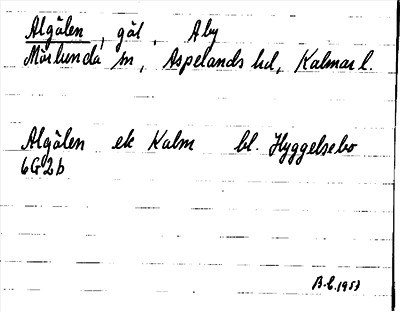 Algölen, göl, Åby
Mörlunda sn, Aspelands hd, Kalmar l.
Algölen ek Kalm bl. Hyggelsebo
6G2b
B.L. 1953